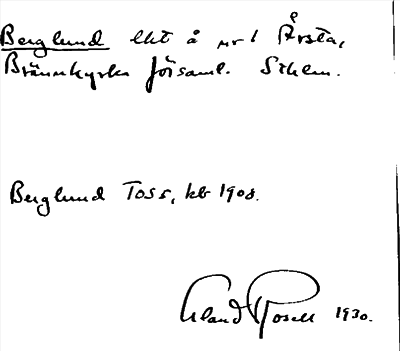 Berglund lht å nr 1 Årsta,
Brännkyrka församl. Sthlm.
Berglund Toss, kb 1908.
Erland Rosell 1930.